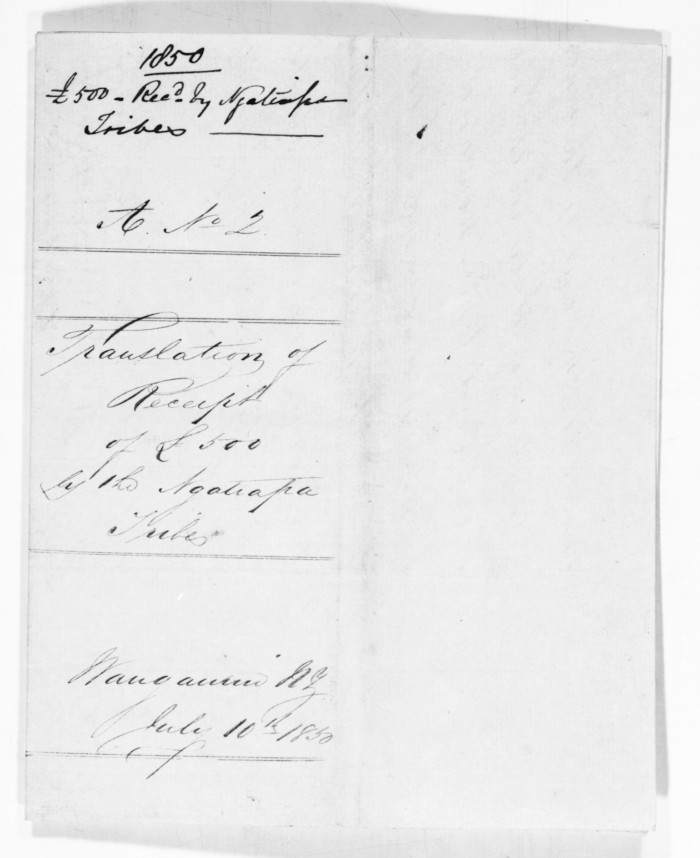 1850
£500 - Recd. by Ngatiapa
Tribes
A. No 2
Translation of
Receipt
of £500
by the Ngatiapa
Tribes
Wanganui NZ
July 10th 1850